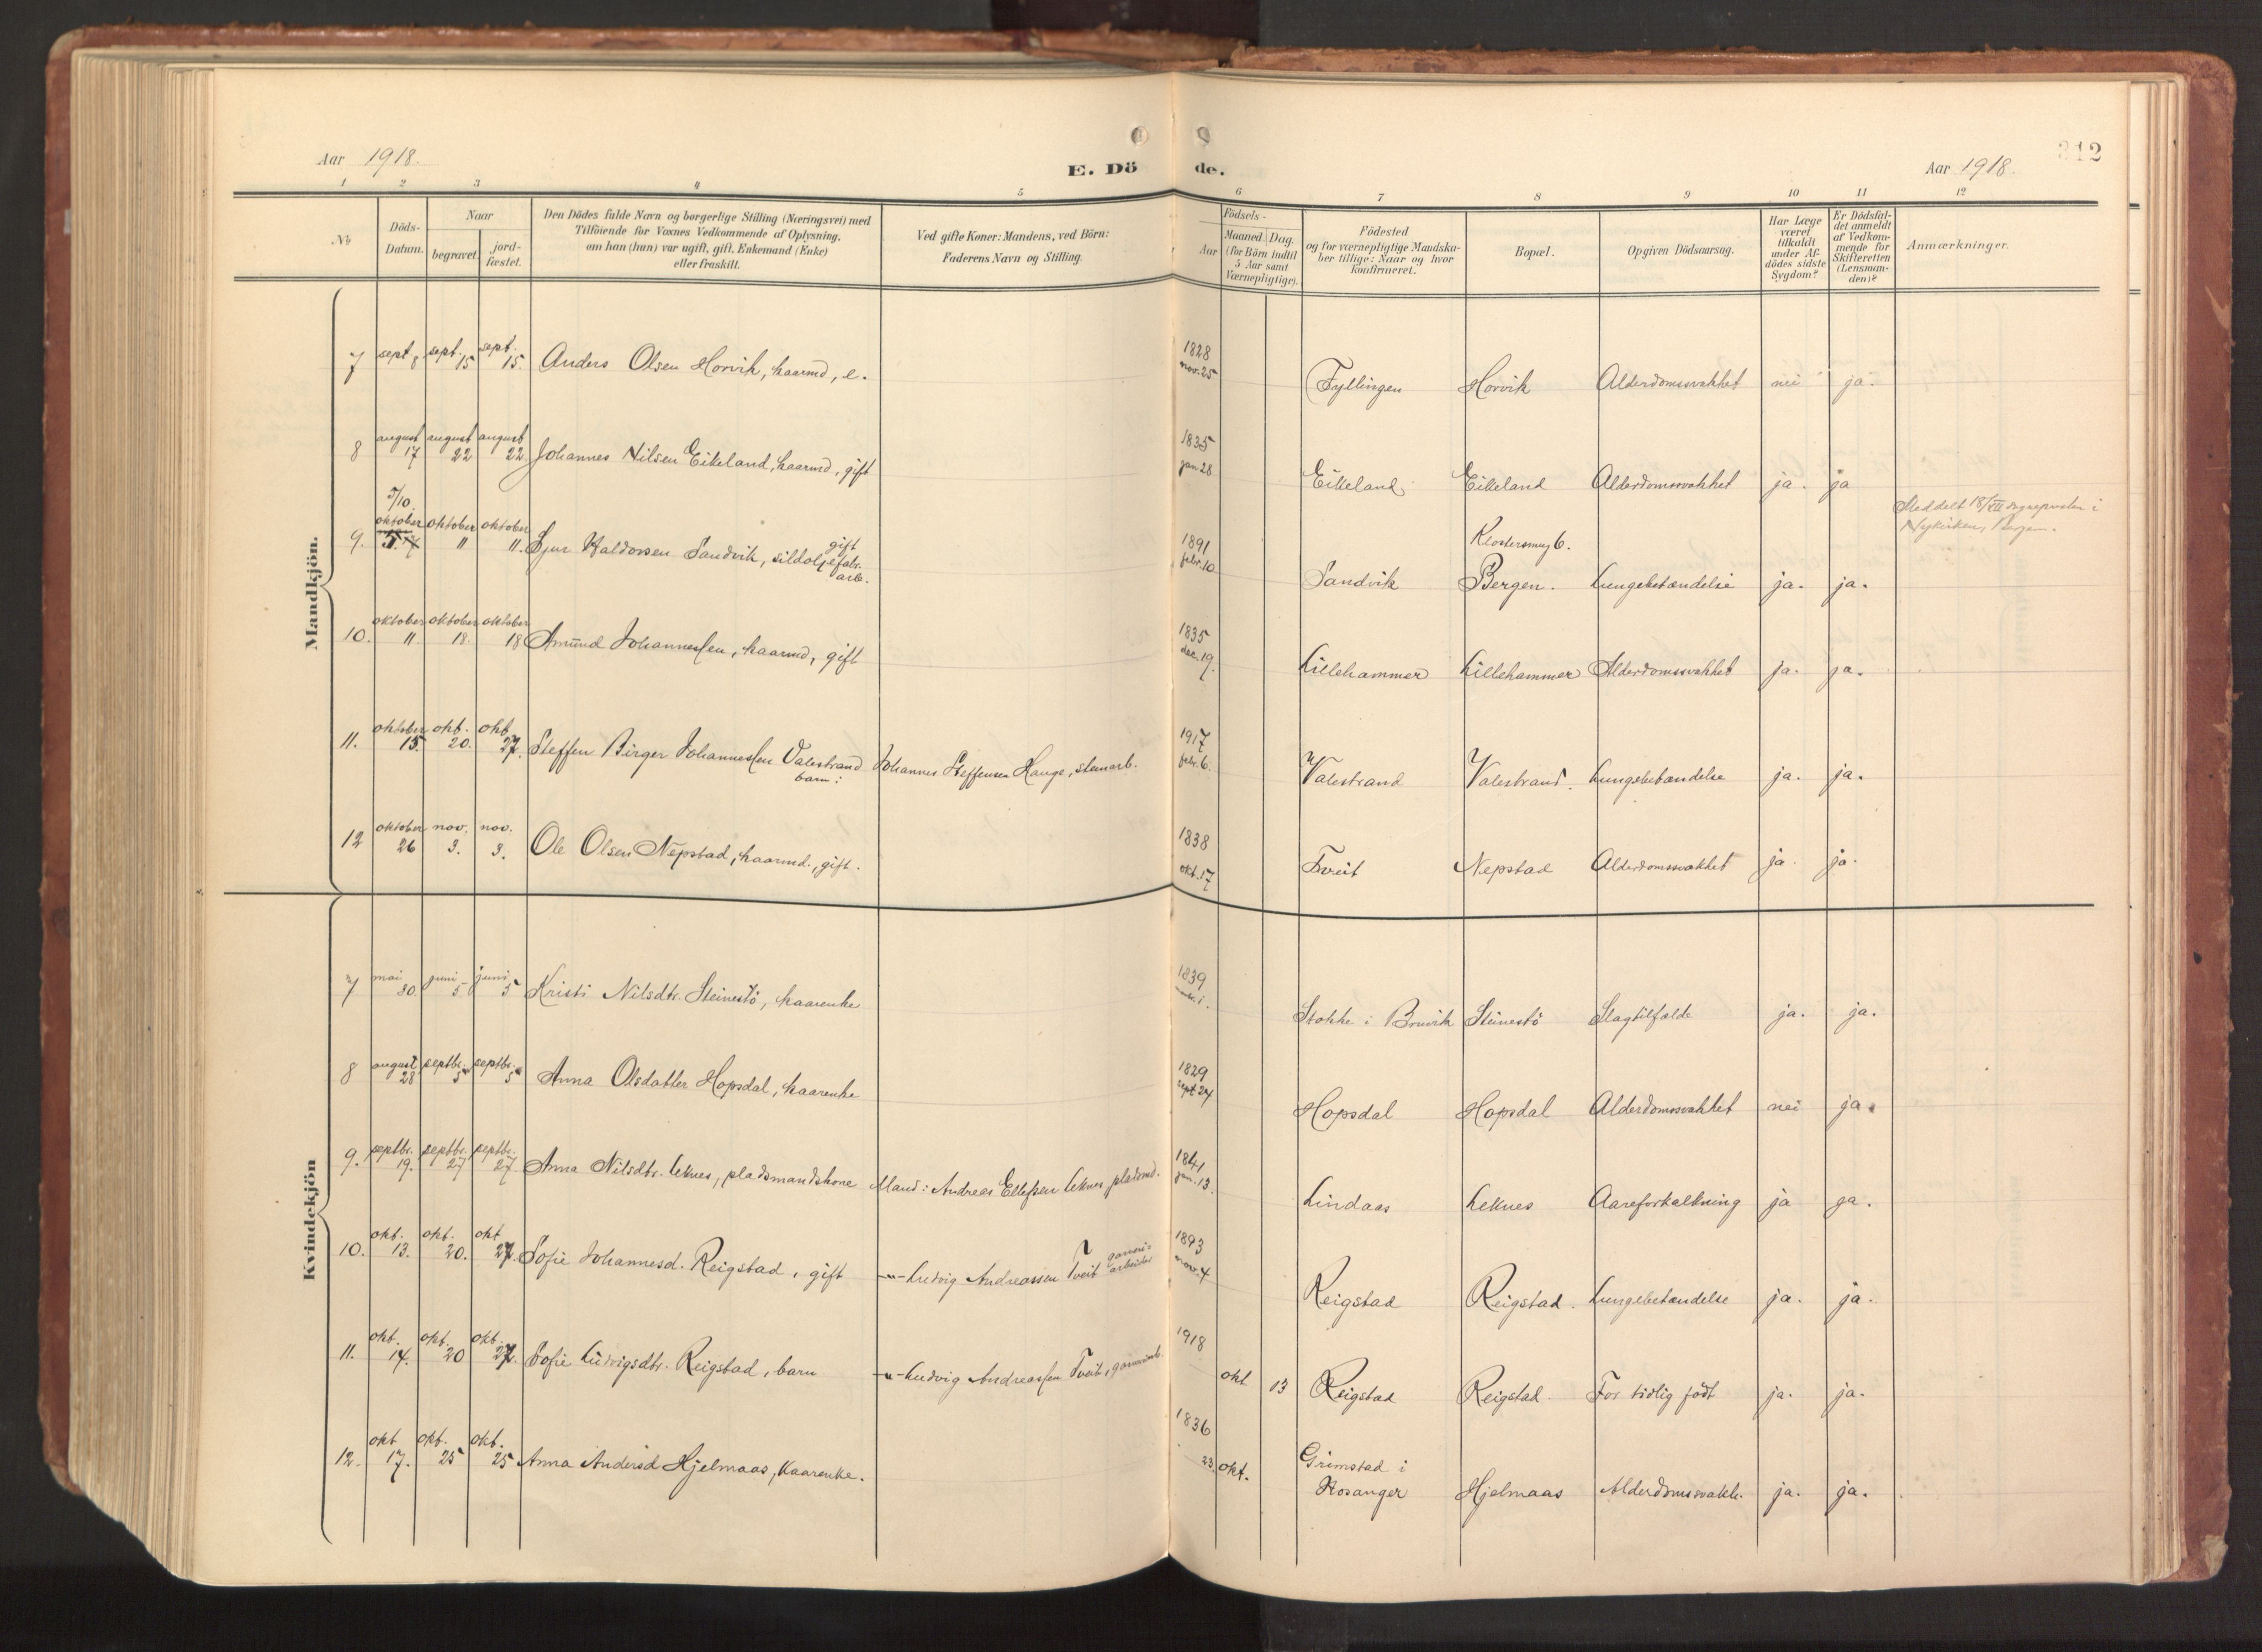 Aar 1918.
E. Dö de.
312
Aar 1918.
1 2 3 4 5 6 7 8 9 10 11 12
No
Döds-
Datum.
Naar
begravet.
jord-
fæstet.
Den Dödes fulde Navn og borgerlige Stilling (Næringsvei) med
Tilföiende for Voxnes Vedkommende af Oplysning,
om han (hun) var ugift, gift, Enkemand (Enke)
eller fraskilt.
Ved gifte Koner: Mandens, ved Börn:
Faderens Navn og Stilling.
Födsels-
Aar
Maaned. Dag.
(for Börn indtil
5 Aar samt
Værnepligtige).
Födested
og for værnepligtige Mandska-
ber tillige: Naar og hvor
konfirmeret.
Bopæl.
Opgiven Dödsaarsag.
Har Læge
været
tilkaldt
under Af-
dödes sidste
Sygdom?
Er Dödsfal-
det anmeldt
af Vedkom-
mende for
Skifteretten
(Lensman-
den)?
Anmærkninger.
Mandkjön.
7 sept 8 sept. 15 sept. 15. Anders Olsen Horvik, kaarmd, e. 1828 nov. 25 Fyllingen Horvik Alderdomssvakhet nei ja.
8 august 17 august 22 august 22. Johannes Nilsen Eikeland, kaarmd, gift 1835 jan 28 Eikeland Eikeland Alderdomssvakhet ja. ja
5/10.
9. oktober oktober 11 oktober 11. Sjur Haldorsen Sandvik, sildoljefabr. arb. gift 1891 febr. 10 Sandvik Klostersmug 6. Bergen. Lungebetændelse ja. ja. Meddelt 18/XII sognepresten i
Nykirken, Bergen.
10. oktober 11. oktober 18. oktober 18 Amund Johannessen, kaarmd, gift 1835 dec. 19. Lillehammer Lillehammer Alderdomssvakhet ja. ja.
11. oktober 15. okt. 20. okt. 27. Steffen Birger Johannessen Valestrand barn: Johannes Steffensen Hauge, stenarb. 1917 febr. 6. Valestrand Valestrand. Lungebetændelse ja. ja.
12 oktober 26 nov. 3. nov. 3. Ole Olsen Nepstad, kaarmd., gift. 1838 okt. 17 Tveit Nepstad Alderdomssvakhet ja. ja.
Kvindekjön
7 mai 30 juni 5 juni 5 Kristi Nilsdtr. Steinestö, kaarenke 1839 1. Stokke i Bruvik Steinestö Slagtilfælde ja. ja.
8 august 28 septbr. 5 septbr. 5 Anna Olsdatter Hopsdal, kaarenke 1829 sept 24 Hopsdal Hopsdal Alderdomssvakhet nei ja.
9. septbr. 19. septbr. 27 septbr. 27 Anna Nilsdtr. Leknes, pladsmandskone Mand: Andreas Ellefsen Leknes pladsmd. 1841 jan. 13. Lindaas Leknes Aareforkalkning ja ja.
10. okt. 13. okt. 20. okt 27. Sofie Johannesd. Reigstad, gift -"- Ludvig Andreassen Tveit garveri-
arbeider 1893 nov. 4 Reigstad Reigstad. Lungebetændelse ja. ja.
11. okt. 14. okt. 20 okt. 27. Sofie Ludvigsdtr. Reigstad, barn -"- Ludvig Andreassen Tveit, 1918 okt 13 Reigstad Reigstad. For tidlig født ja. ja.
12. okt 17. okt. 25 okt. 25 Anna Andersd Hjelmaas, Kaarenke. 1836 23. okt. Grimstad i
Hosanger Hjelmaas Alderdomssvakh. ja. ja.